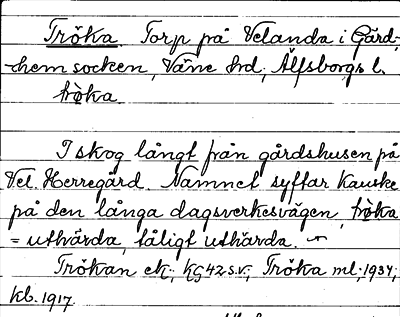 Tröka Torp på Velanda i Gärd-
hem socken, Väne hrd, Älfsborgs l.
tröka.
I skog långt från gårdshusen på
Vel. Herregård. Namnet syftar kanske
på den långa dagsverksvägen, tröka
= uthärda, tåligt uthärda.
Trökan ek; KG42 s.v.; Tröka ml; 1934;
kb. 1917